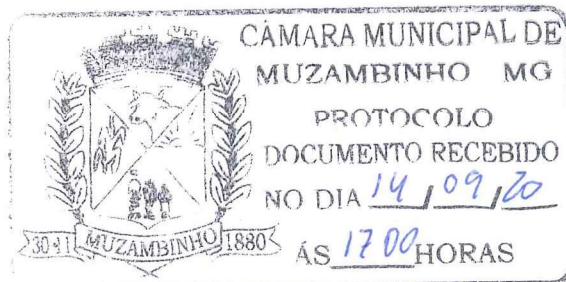 CÂMARA MUNICIPAL DE
MUZAMBINHO MG
PROTOCOLO
DOCUMENTO RECEBIDO
NO DIA 14 / 09 / 20
ÁS 17 00 HORAS
30-11 MUZAMBINHO 1880